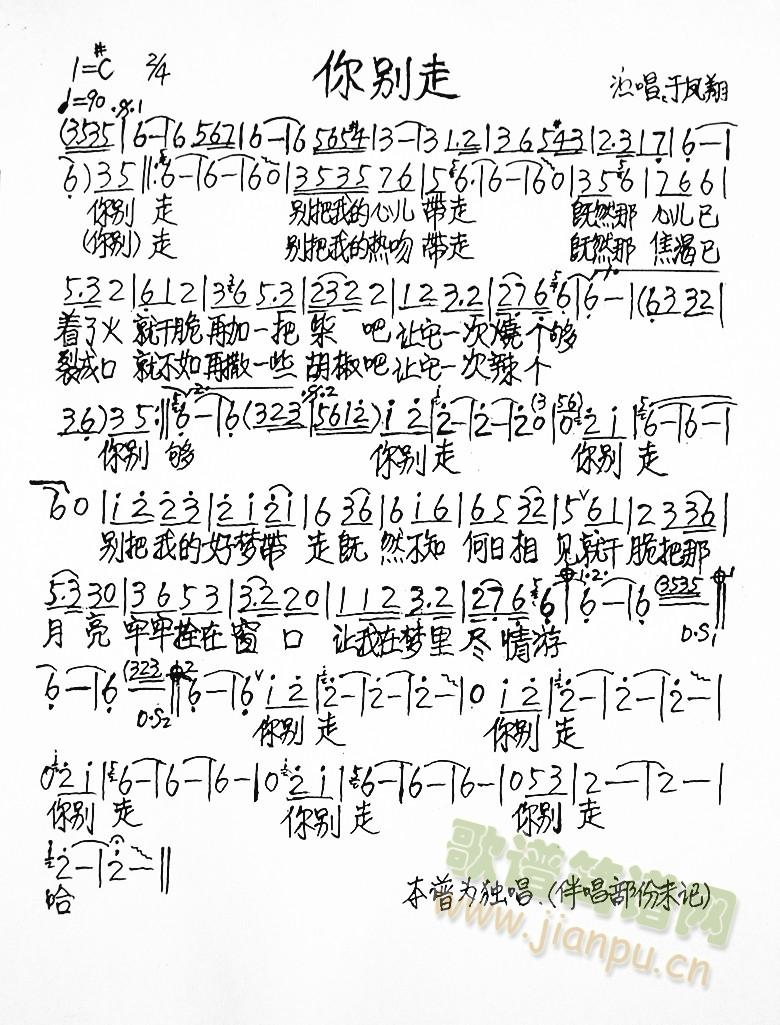 1=#C 2/4 你别走 演唱:于凤翔
♩=90 𝄋1
(3535|6—|6 567|6—|6 5654#|3—|3 1.2|36 5#43|2.3 17|6—|
6) 35‖:6—|6—|60|3535 76|5 56.|6—|60|35 56|7 66|
你别 走 别把我的心儿 带走 既然那 心儿已
(你别) 走 别把我的热吻 带走 既然那 焦渴已
5.3 2|6 12|3 36 5.3|232 2|12 3.2|276 56|6—|(63 32|
着了火 就干脆 再加一把 柴 吧 让它一次 烧个够
裂成口 就不如 再撒一些 胡椒吧 让它一次 辣个
36) 35:‖6—|6(323|5612) 12|2—|2—|20(3|056) 21|6—|6—|
你别 够 你别走 你别 走
60|12 23|21 21|6 36|6 16|65 32|5 61|23 36|
别把 我的好梦带 走既 然不知 何日相 见就干脆把那
5.3 30|36 53|3.2 20|11 2 3.2|276 56|6—|6 (3535‖
月 亮 牢牢拴在窗 口 让我在梦里 尽情游
D.S1
6—|6 (323‖6—|6 12|2—|2—|2—|0 12|2—|2—|2—|
D.S2
你别 走 你别 走
0 21|6—|6—|6—|0 21|6—|6—|6—|0 53|2—|2—|
你别 走 你别 走 你别 走
2—|2—‖
哈
本谱为独唱.(伴唱部份未记)
歌谱简谱网
www.jianpu.cn